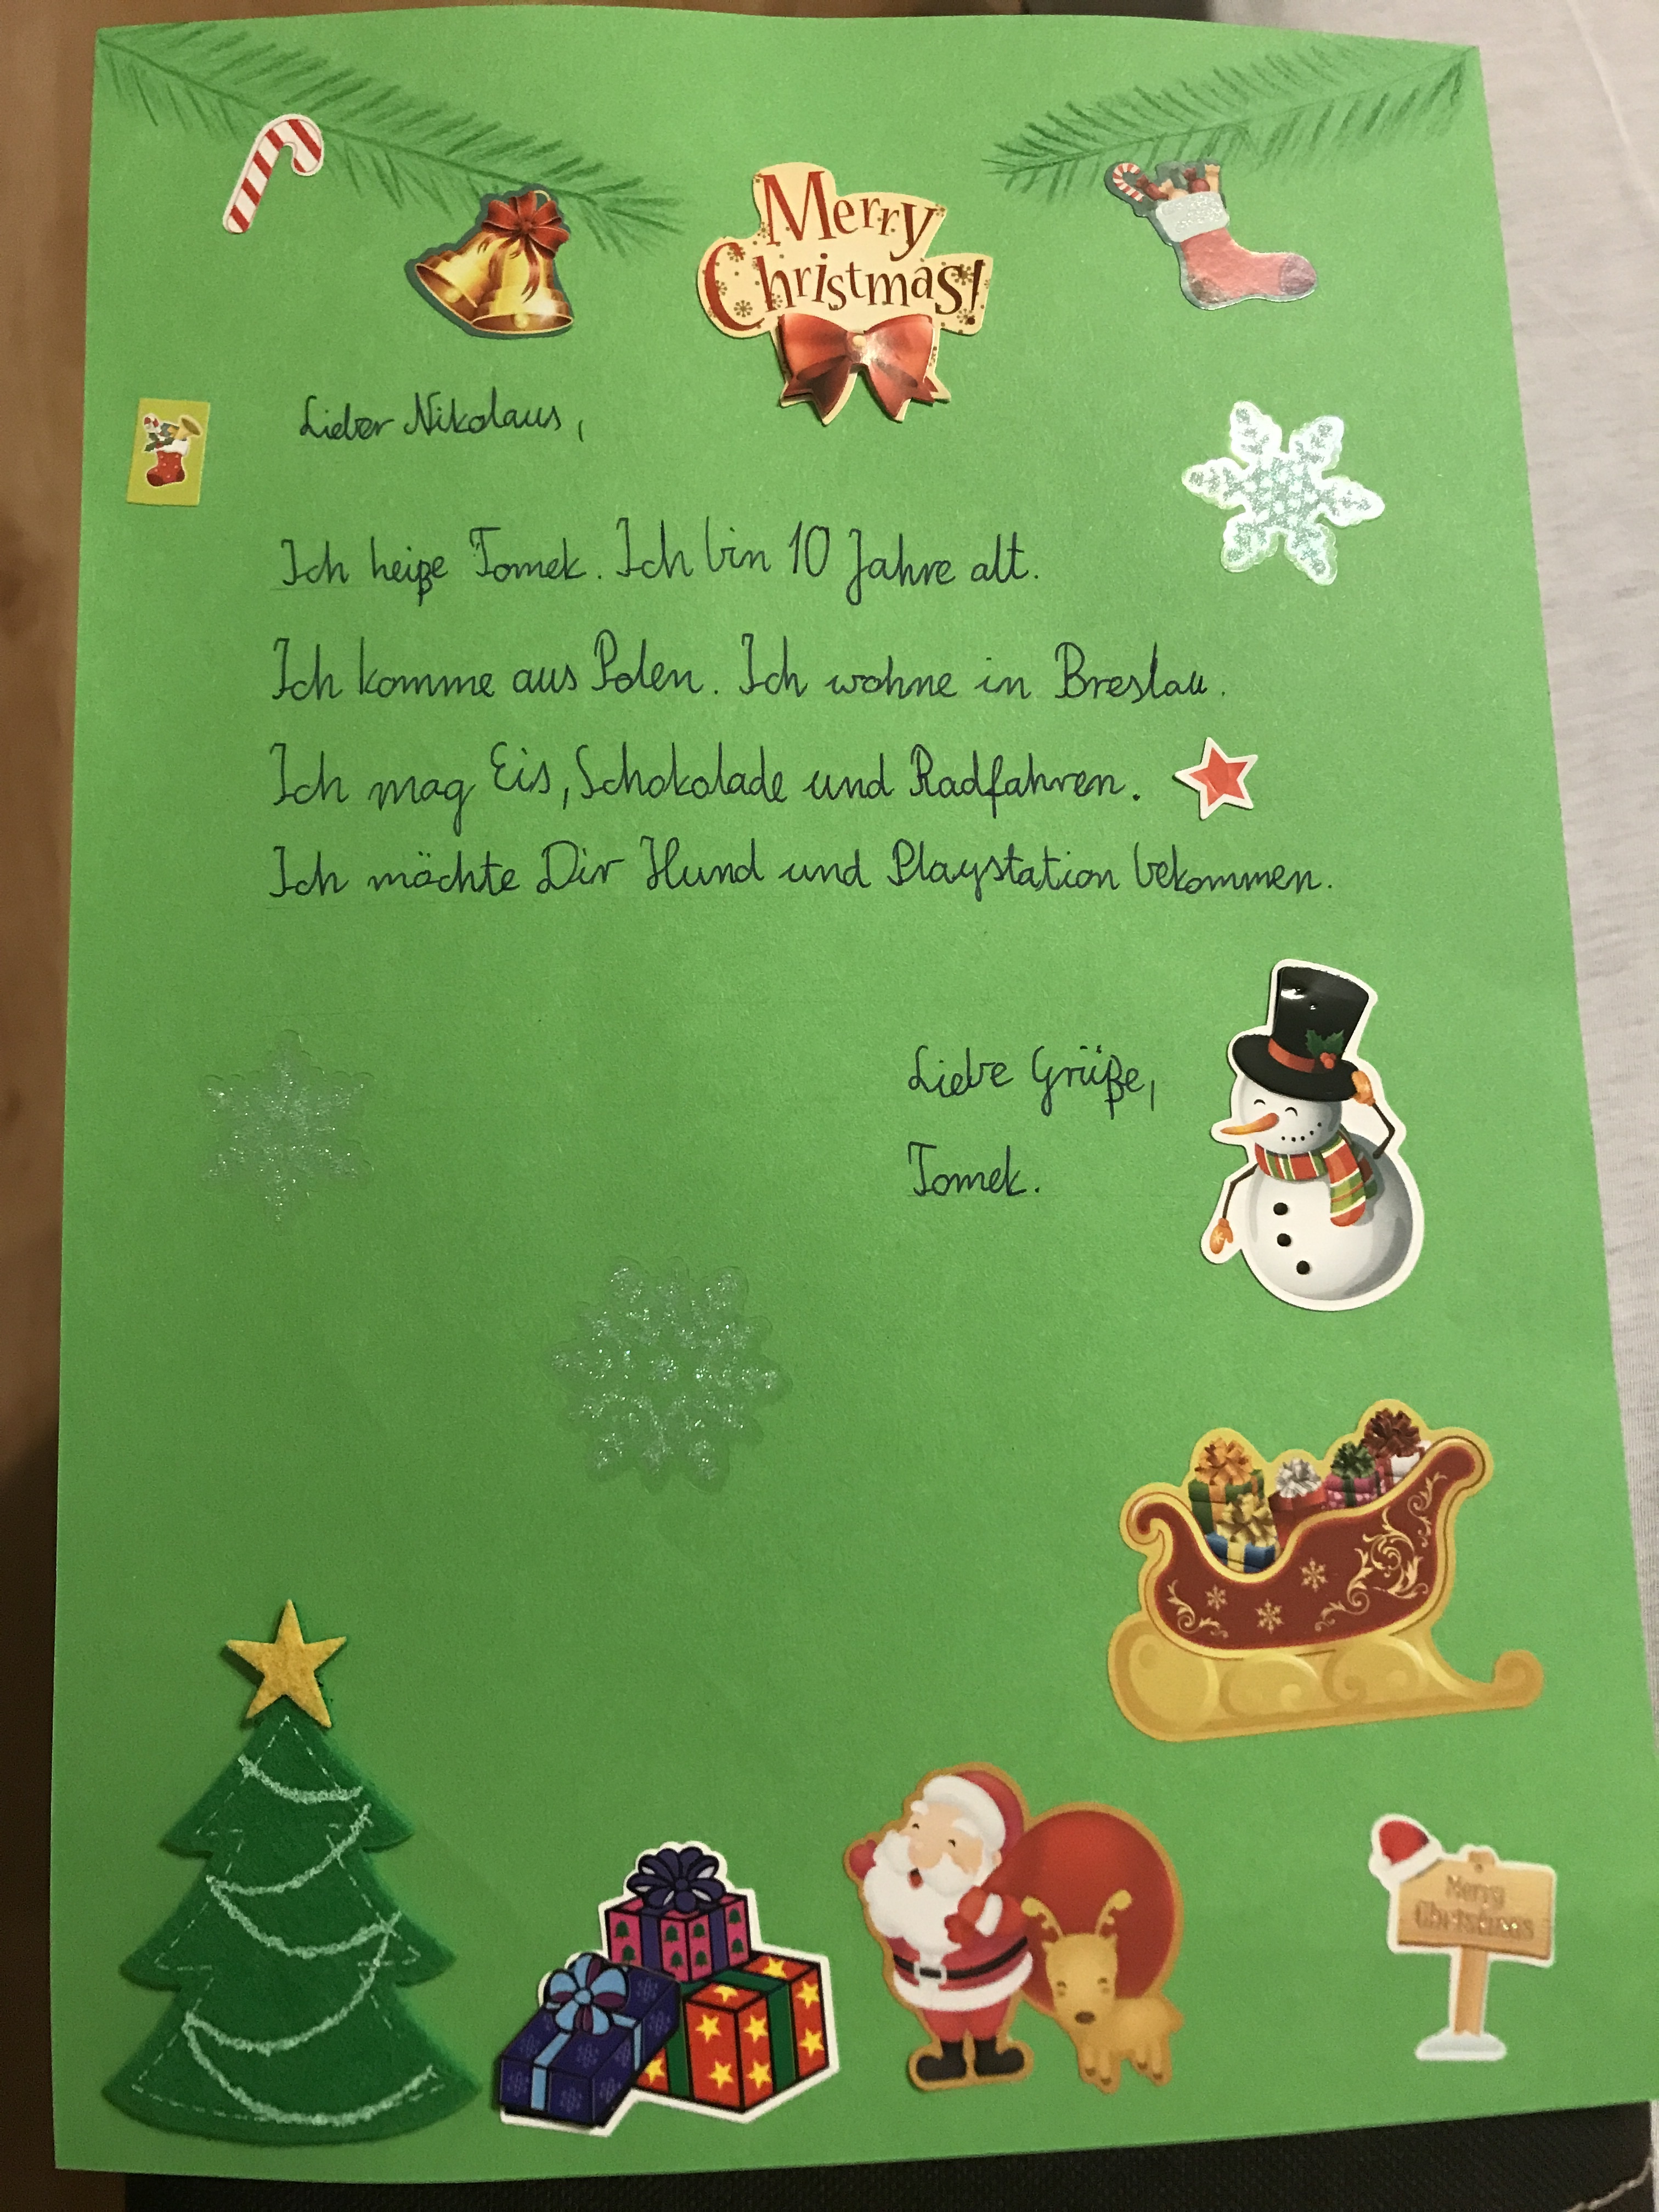 Merry
Christmas!
Lieber Nikolaus,
Ich heiße Tomek. Ich bin 10 Jahre alt.
Ich komme aus Polen. Ich wohne in Breslau.
Ich mag Eis, Schokolade und Radfahren.
Ich möchte Dir Hund und Playstation bekommen.
Liebe Grüße,
Tomek.
Merry
Christmas